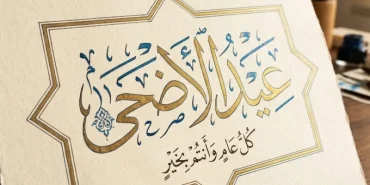 عِيدُ الْأَضْحَى
كُلُّ عَامٍ وَأَنْتُمْ بِخَيْرٍ